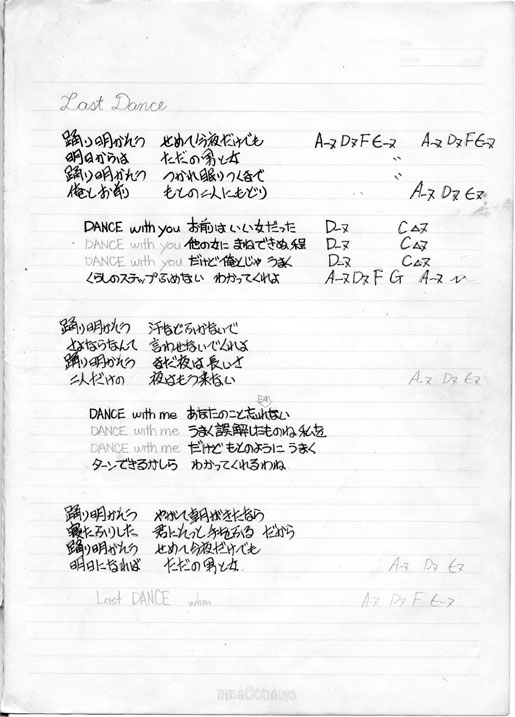 NO.
DATE
Last Dance
踊り明かそう せめて今夜だけでも A-7 D7 F E-7 A-7 D7 F E-7
明日からは ただの男と女 〃
踊り明かそう つかれ眠りつくまで 〃
俺とお前 もとの二人にもどり A-7 D7 E7
DANCE with you お前はいい女だった D-7 C△7
DANCE with you 他の女に まねできぬ程 D-7 C△7
DANCE with you だけど俺とじゃ うまく D-7 C△7
くらしのステップふめない わかってくれよ A-7 D7 F G A-7 〜
踊り明かそう 汗などふかないで
さよならなんて 言わせないでくれよ
踊り明かそう まだ夜は長いさ
二人だけの 夜はもう来ない A-7 D7 E7
DANCE with me あなたのこと忘れない
DANCE with me うまく誤解したものね 私達
DANCE with me だけど もとのように うまく
ターンできるかしら わかってくれるわね
踊り明かそう やがて朝がきたなら
寝たふりした 君にそっと手をふる だから
踊り明かそう せめて今夜だけでも
明日になれば ただの男と女 A-7 D7 E7
Last DANCE whm A-7 D7 F E-7
THE GOOD GUYS